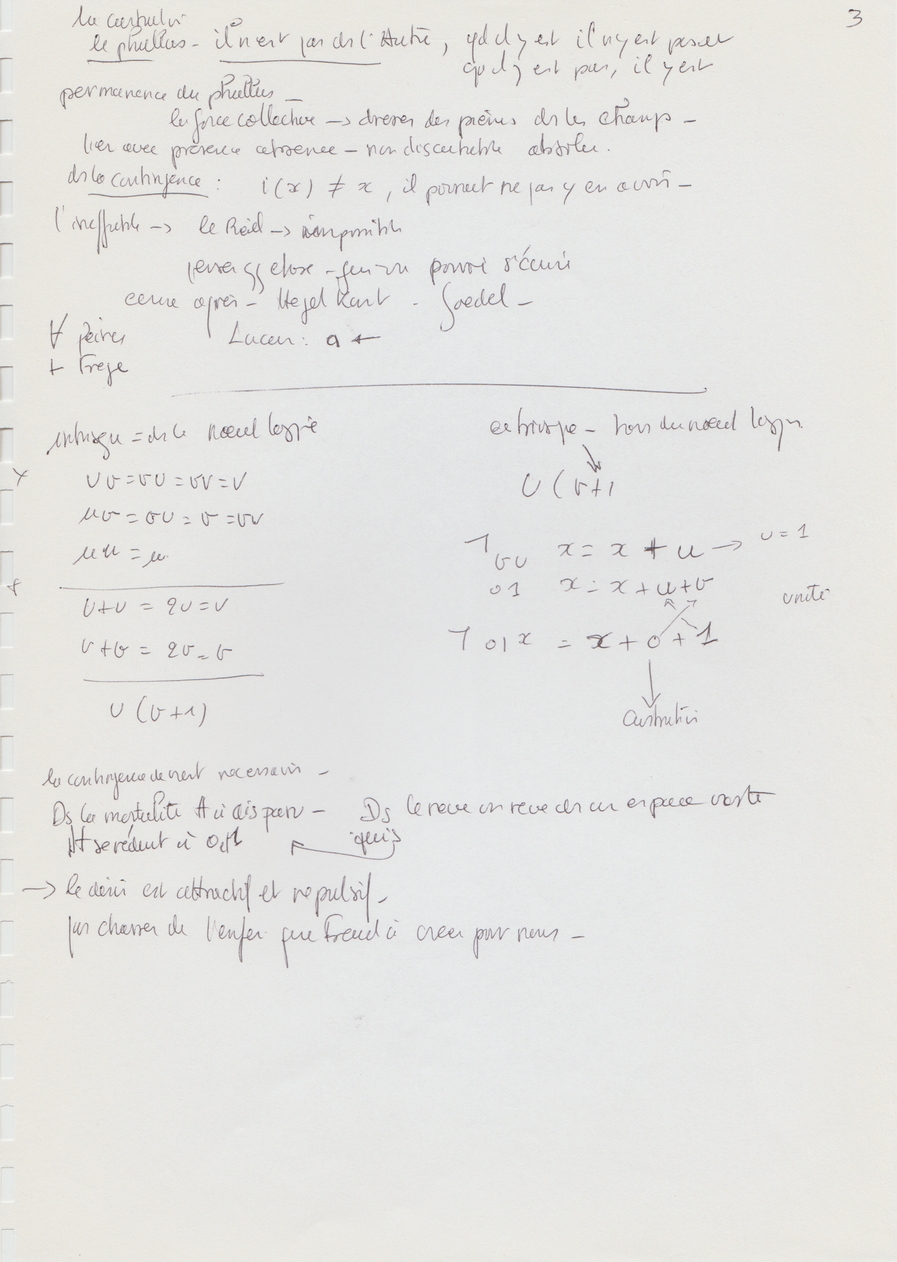 3
la castration
le phallus - il n'est pas ds l'Autre, qd il y est il n'y est pas et
qd il y est pas, il y est
permanence du phallus -
la force collective → dresser des pierres ds les champs -
lien avec présence absence - non discutable absolu.
ds la contingence : i(x) ≠ x, il pourrait ne pas y en avoir -
l'ineffable → le Réel → impossible
poser qq chose - pouvoir s'écrire
cerné après - Hegel Kant - Goedel -
∀ Peirce Lacan : a ←
+ Frege
= ds le noeud logique
- hors du noeud logique
×
uv = vu = vv = v
U (v+1
uv = vu = v = vv
⅂ vu x = x + u → u = 1
uu = u
01 x = x + u + v
unité
+
u+u = 2u = u
v+v = 2v = v
⅂ 01 x = x + 0 + 1
U (v+1)
castration
la contingence devient nécessaire -
Ds la mortalité A a disparu - Ds le rêve un rêve ds un espace vaste
A se réduit à 0,1
→ le désir est attractif et répulsif -
pas chasser de l'enfer que Freud a créer pour nous -